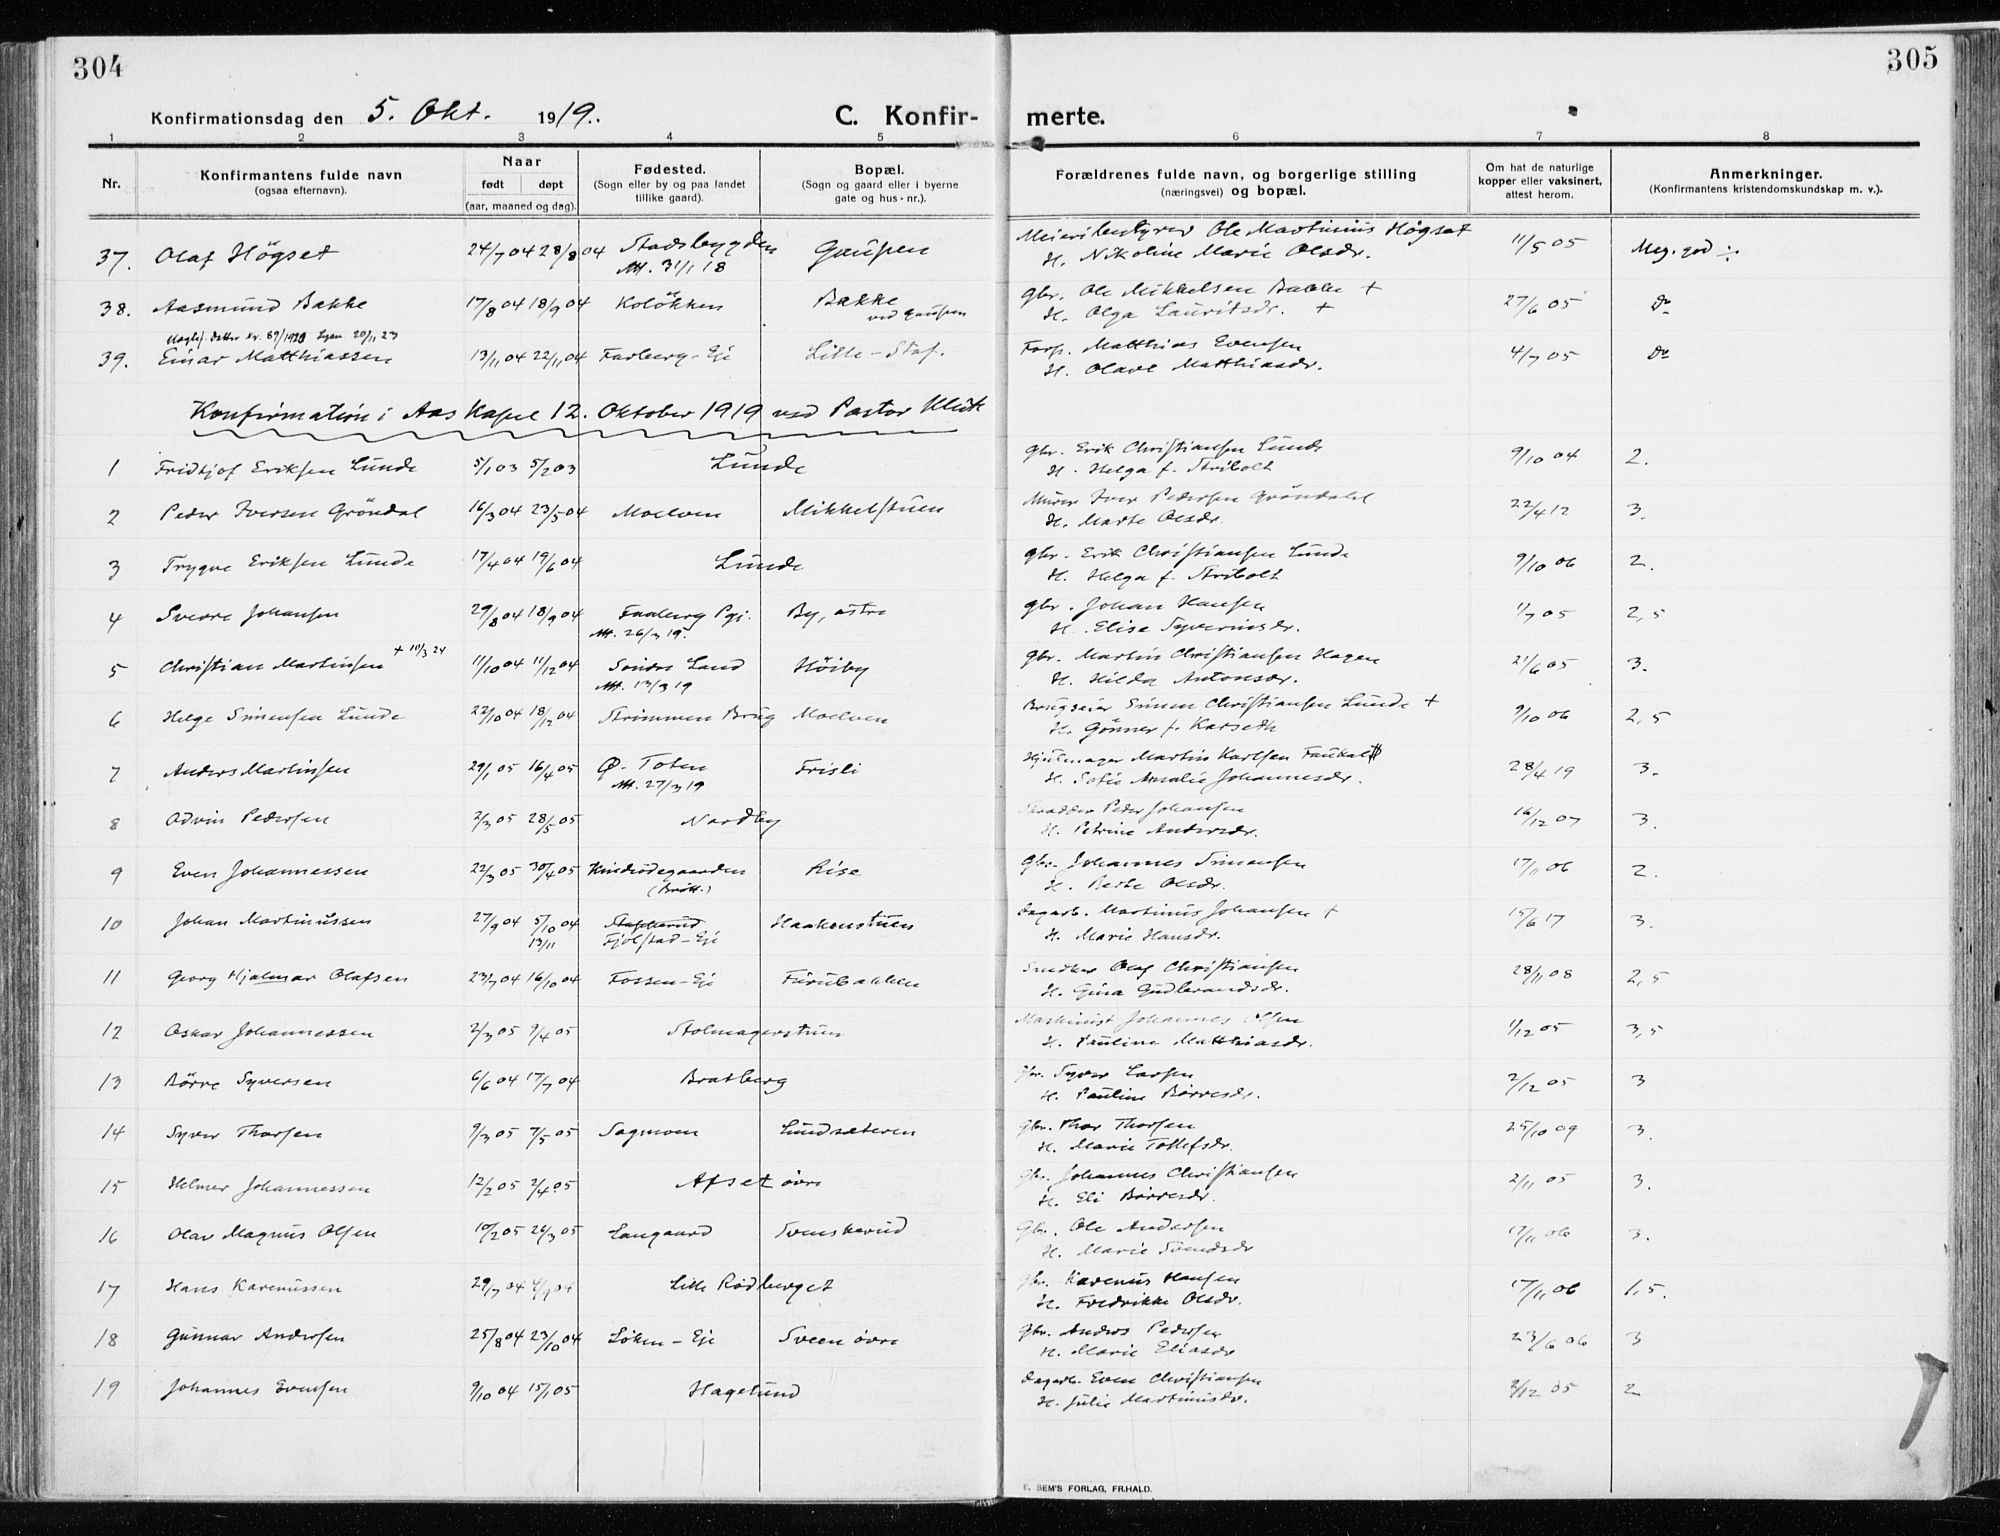 304
305
Konfirmationsdag den 5. Okt. 1919.
C. Konfirmerte.
1 2 3 4 5 6 7 8
Nr.
Konfirmantens fulde navn
(ogsaa efternavn).
Naar
født døpt
(aar, maaned og dag).
Fødested.
(Sogn eller by og paa landet
tillike gaard).
Bopæl.
(Sogn og gaard eller i byerne
gate og hus-nr.).
Forældrenes fulde navn, og borgerlige stilling
(næringsvei) og bopæl.
Om hat de naturlige
kopper eller vaksinert,
attest herom.
Anmerkninger.
(Konfirmantens kristendomskundskap m. v.).
37. Olaf Högset 24/7 04 28/8 04 Stadsbygden Gaupen Meieribestyrer Ole Martinius Högset 11/5 05 Meg. god ÷
Att. 31/1 18 H. Nikoline Marie Olsdr.
38. Aasmund Bakke 17/8 04 18/9 04 Kolökken Bakke Gbr. Ole Mikkelsen Bakke + 27/6 05 Do
ved Gaupen H. Olga Lauritsdr. +
Nr. 89/1920 20/11 23
39. Einar Matthiassen 13/11 04 22/11 04 Farberg-Eje Lille-Staf. Forp. Matthias Evensen 4/7 05 Do
H. Olave Matthiasdr.
Konfirmation i Aas Kapel 12. Oktober 1919 ved Pastor Klük
1 Fridtjof Eriksen Lunde 5/1 03 5/2 03 Lunde Gbr. Erik Christiansen Lunde 9/10 04 2.
H. Helga f. Stribolt
2 Peder Iversen Gröndal 16/3 04 23/5 04 Moelven Mikkelstuen Murer Iver Pedersen Gröndahl 22/4 12 3.
H. Marte Olsdr.
3 Trygve Eriksen Lunde 17/4 04 19/6 04 Lunde Gbr. Erik Christiansen Lunde 9/10 06 2.
H. Helga f. Stribolt
4 Sverre Johansen 29/8 04 18/9 04 Faaberg Pgj. By, östre Gbr. Johan Hansen 1/7 05 2,5
Att. 26/3 19. H. Elise Syverinsdr.
5 Christian Martinsen + 10/3 24 11/10 04 11/12 04 Söndre Land Höiby Gbr. Martin Christiansen Hagen 21/6 05 3.
Att. 13/3 19 H. Hilda Antonsdr.
6 Helge Simensen Lunde 22/10 04 18/12 04 Strömmen Brug Moelven Brugseier Simen Christiansen Lunde + 9/10 06 2,5
H. Gönner f. Karseth
7 Anders Martinsen 29/1 05 16/4 05 Ø. Toten Frisli Hjulmager Martin Karlsen 28/4 19 3.
Att. 27/3 19 H. Sofie Amalie Johannesdr.
8 Odvin Pedersen 2/3 05 28/5 05 Nordby Skrædder Peder Johansen 16/12 07 3.
H. Petrine Andersdr.
9 Even Johannessen 22/3 05 30/4 05 Hindrödegaarden Rise Gbr. Johannes Simensen 17/11 06 2.
(Brött.) H. Berte Olsdr.
10 Johan Martinussen 27/9 04 5/10 04 Haakenstuen Dagarb. Martinus Johansen + 15/6 17 3.
13/11 Fjölstad-Eje H. Marie Hansdr.
11 Georg Hjalmar Olafsen 23/7 04 16/10 04 Fossen-Eje Furubakken Snedker Olaf Christiansen 28/11 08 2,5
H. Gina Gudbrandsdr.
12 Oskar Johannessen 2/3 05 2/4 05 Stolmagerstuen Maskinist Johannes Olsen 1/12 05 3,5
H. Pauline Matthiasdr.
13 Börre Syversen 6/6 04 17/7 04 Bratberg Gbr. Syver Larsen 2/12 05 3
H. Pauline Börresdr.
14 Syver Thorsen 9/3 05 7/5 05 Sagmoen Lundsæteren Gbr. Thor Thorsen 25/10 09 3.
H. Marie Tollefsdr.
15 Helmer Johannessen 12/2 05 2/4 05 Afset övre Gbr. Johannes Christiansen 2/11 05 3.
H. Eli Börresdr.
16 Olav Magnus Olsen 10/2 05 26/3 05 Langaard Svenskerud Gbr. Ole Andersen 17/11 06 3.
H. Marie Svendsdr
17 Hans Karenussen 29/7 04 4/9 04 Lille Rödberget Gbr. Karenus Hansen 17/11 06 1,5.
H. Fredrikke Olsdr.
18 Gunnar Andersen 25/8 04 23/10 04 Löken-Eje Sveen övre Gbr. Anders Pedersen 23/6 06 3
H. Marie Eliasdr
19 Johannes Evensen 9/10 04 15/1 05 Hagelund Dagarb. Even Christiansen 2/12 05 2
H. Julie Martinusdr.
E. SEM'S FORLAG, FR.HALD.